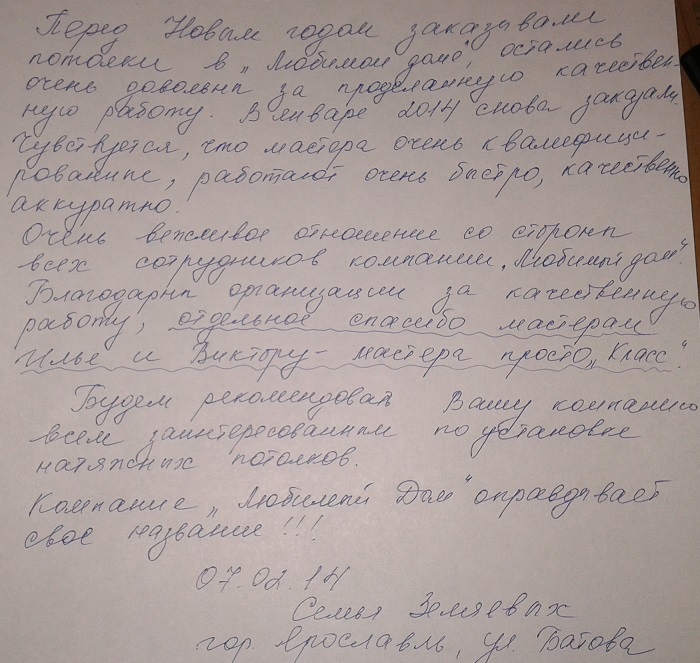 Перед Новым годом заказывали
потолки в „Любимом доме", остались
очень довольны за проделанную качествен-
ную работу. В январе 2014 снова заказали.
Чувствуется, что мастера очень квалифици-
рованные, работают очень быстро, качественно
аккуратно.
Очень вежливое отношение со стороны
всех сотрудников компании „Любимый дом".
Благодарны организации за качественную
работу, отдельное спасибо мастерам
Илье и Виктору - мастера просто „Класс".
Будем рекомендовать Вашу компанию
всем заинтересованным по установке
натяжных потолков.
Компание „Любимый Дом" оправдывает
свое название!!!
07.02.14
Семья Земляевых
гор. Ярославль, ул. Батова